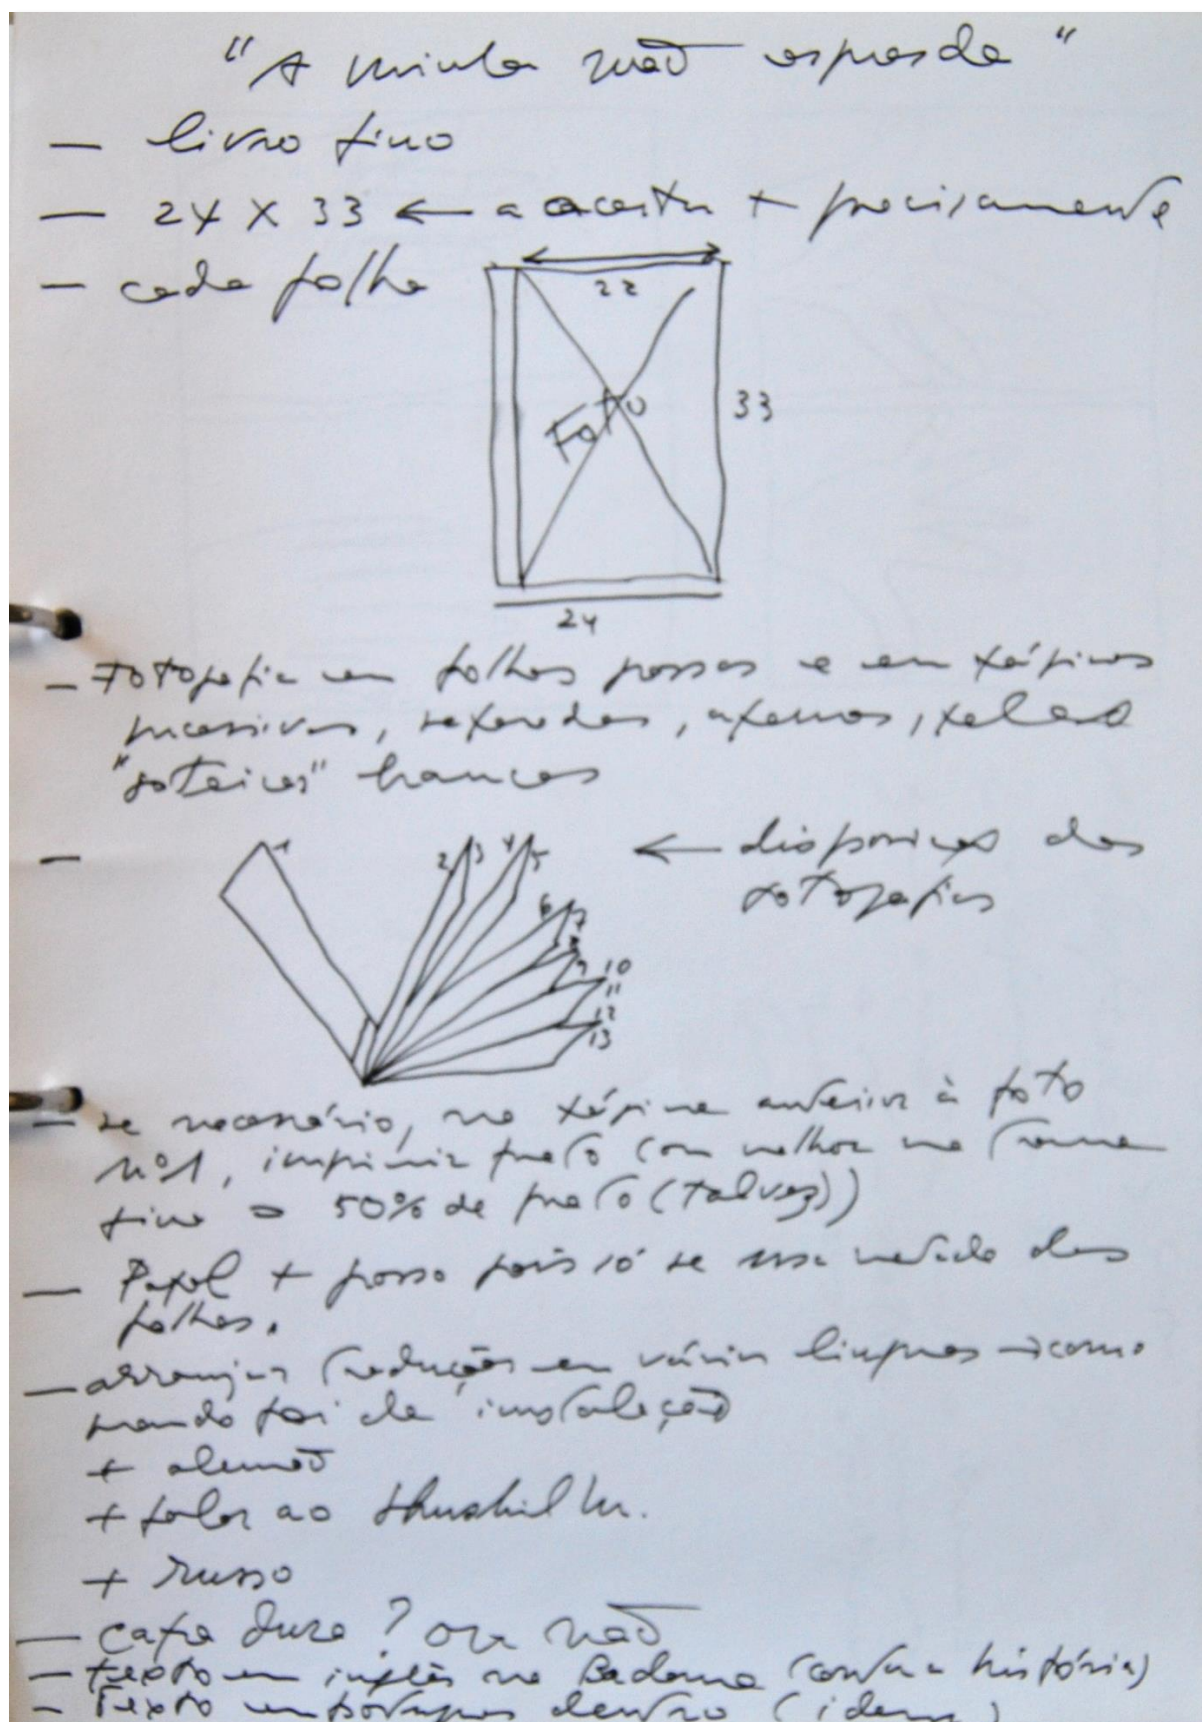 "A minha mão esquerda"
— livro fino
— 24 X 33 ← a acertar + precisamente
— cada folha
22
Foto
33
24
— Fotografia em folhas grossas e em páginas
sucessivas, separadas, apenas, pelas
"goteiras" brancas
—
1 2 3 4 5 6 7 8 9 10 11 12 13
← disposição das
fotografias
— se necessário, na página anterior à foto
nº1, imprimir preto com melhor na trama
fina 50% de preto (talvez))
— Papel + grosso pois só se usa metade das
folhas.
— arranjar traduções em várias línguas → como
quando foi da instalação
+ alemão
+ falar ao
+ russo
— capa dura? ou não
— texto em inglês na badana (conta a história)
— Texto em português dentro (idem)